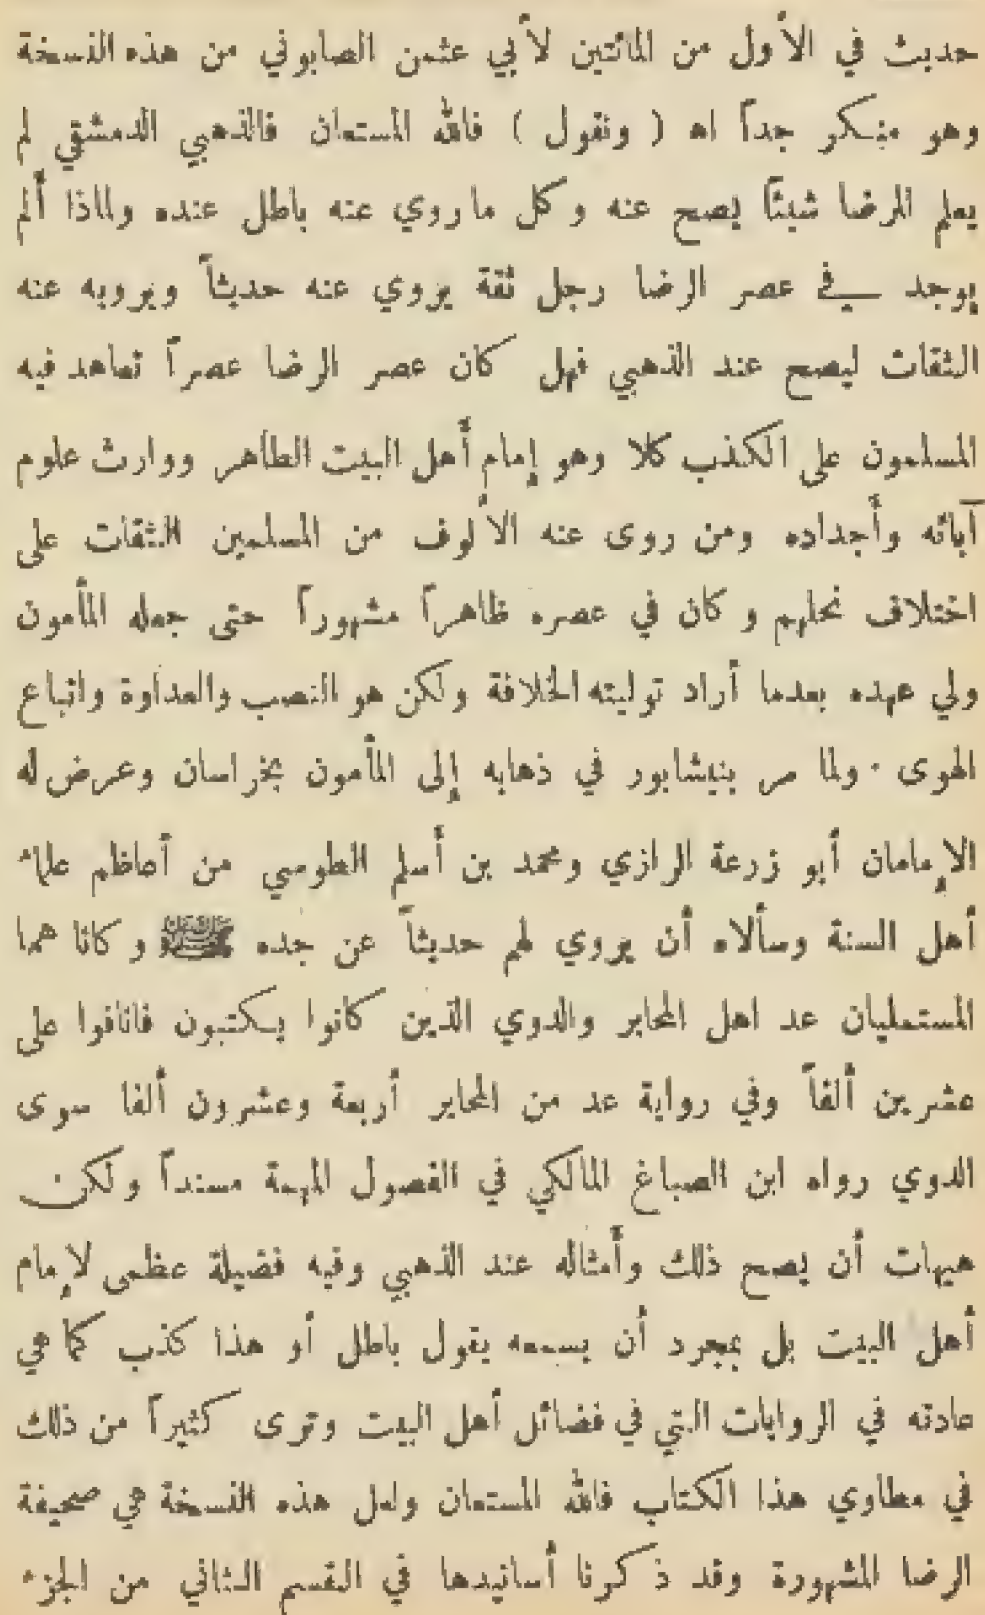 حديث في الأول من المائتين لأبي عثمن الصابوني من هذه النسخة
وهو منكر جداً اه ( ونقول ) فالله المستعان فالذهبي الدمشقي لم
يعلم للرضا شيئاً يصح عنه وكل ما روي عنه باطل عنده ولماذا ألم
يوجد في عصر الرضا رجل ثقة يروي عنه حديثاً ويرويه عنه
الثقات ليصح عند الذهبي فهل كان عصر الرضا عصراً تعاهد فيه
المسلمون على الكذب كلا وهو إمام أهل البيت الطاهر ووارث علوم
آبائه وأجداده ومن روى عنه الألوف من المسلمين الثقات على
اختلاف نحلهم وكان في عصره ظاهراً مشهوراً حتى جعله المأمون
ولي عهده بعدما أراد توليته الخلافة ولكن هو النصب والعداوة واتباع
الهوى . ولما مر بنيشابور في ذهابه إلى المأمون بخراسان وعرض له
الإمامان أبو زرعة الرازي ومحمد بن أسلم الطوسي من أعاظم علماء
أهل السنة وسألاه أن يروي لهم حديثاً عن جده ﷺ وكانا هما
المستمليان عد اهل المحابر والدوي الذين كانوا يكتبون فانافوا على
عشرين ألفاً وفي رواية عد من المحابر أربعة وعشرون ألفا سوى
الدوي رواه ابن الصباغ المالكي في الفصول المهمة مسنداً ولكن
هيهات أن يصح ذلك وأمثاله عند الذهبي وفيه فضيلة عظمى لإمام
أهل البيت بل بمجرد أن يسمعه يقول باطل أو هذا كذب كما هي
عادته في الروايات التي في فضائل أهل البيت وترى كثيراً من ذلك
في مطاوي هذا الكتاب فالله المستعان ولعل هذه النسخة هي صحيفة
الرضا المشهورة وقد ذكرنا أسانيدها في القسم الثاني من الجزء